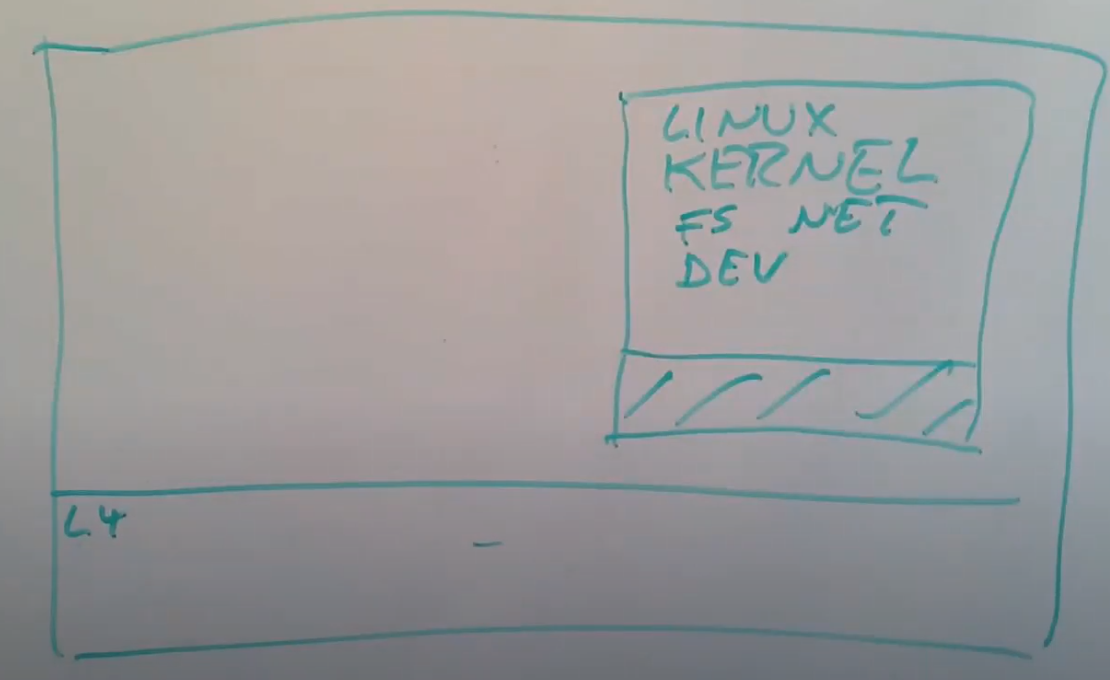 LINUX
KERNEL
FS NET
DEV
L4